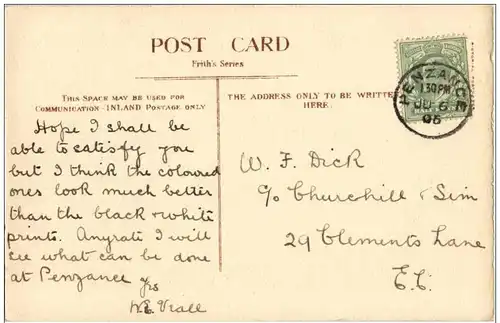 POST CARD
Frith's Series
THIS SPACE MAY BE USED FOR
COMMUNICATION - INLAND POSTAGE ONLY
THE ADDRESS ONLY TO BE WRITTEN
HERE.
Hope I shall be
able to satisfy you
but I think the coloured
ones look much better
than the black & white
prints. Anyrate I will
see what can be done
at Penzance
Yrs
W. F. Dick
c/o Churchill & Sim
29 Clements Lane
E.C.
PENZANCE
1 30 PM